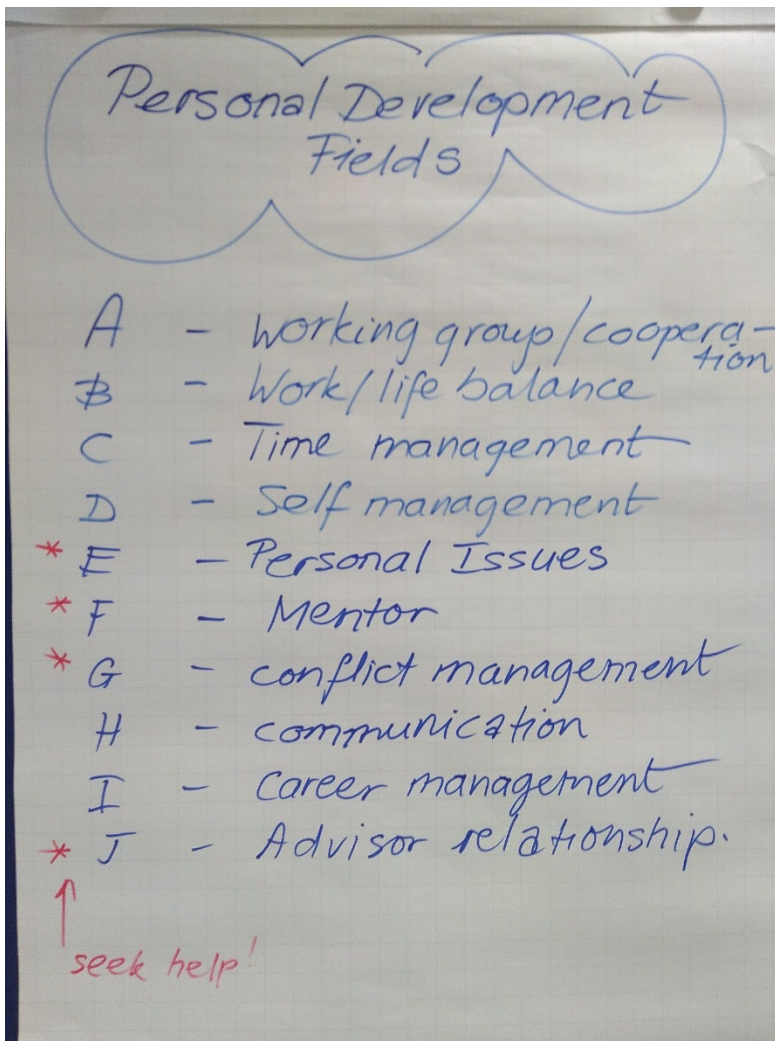 Personal Development
Fields
A - working group/coopera-
tion
B - Work/life balance
C - Time management
D - Self management
* E - Personal Issues
* F - Mentor
* G - conflict management
H - communication
I - Career management
* J - Advisor relationship.
seek help!